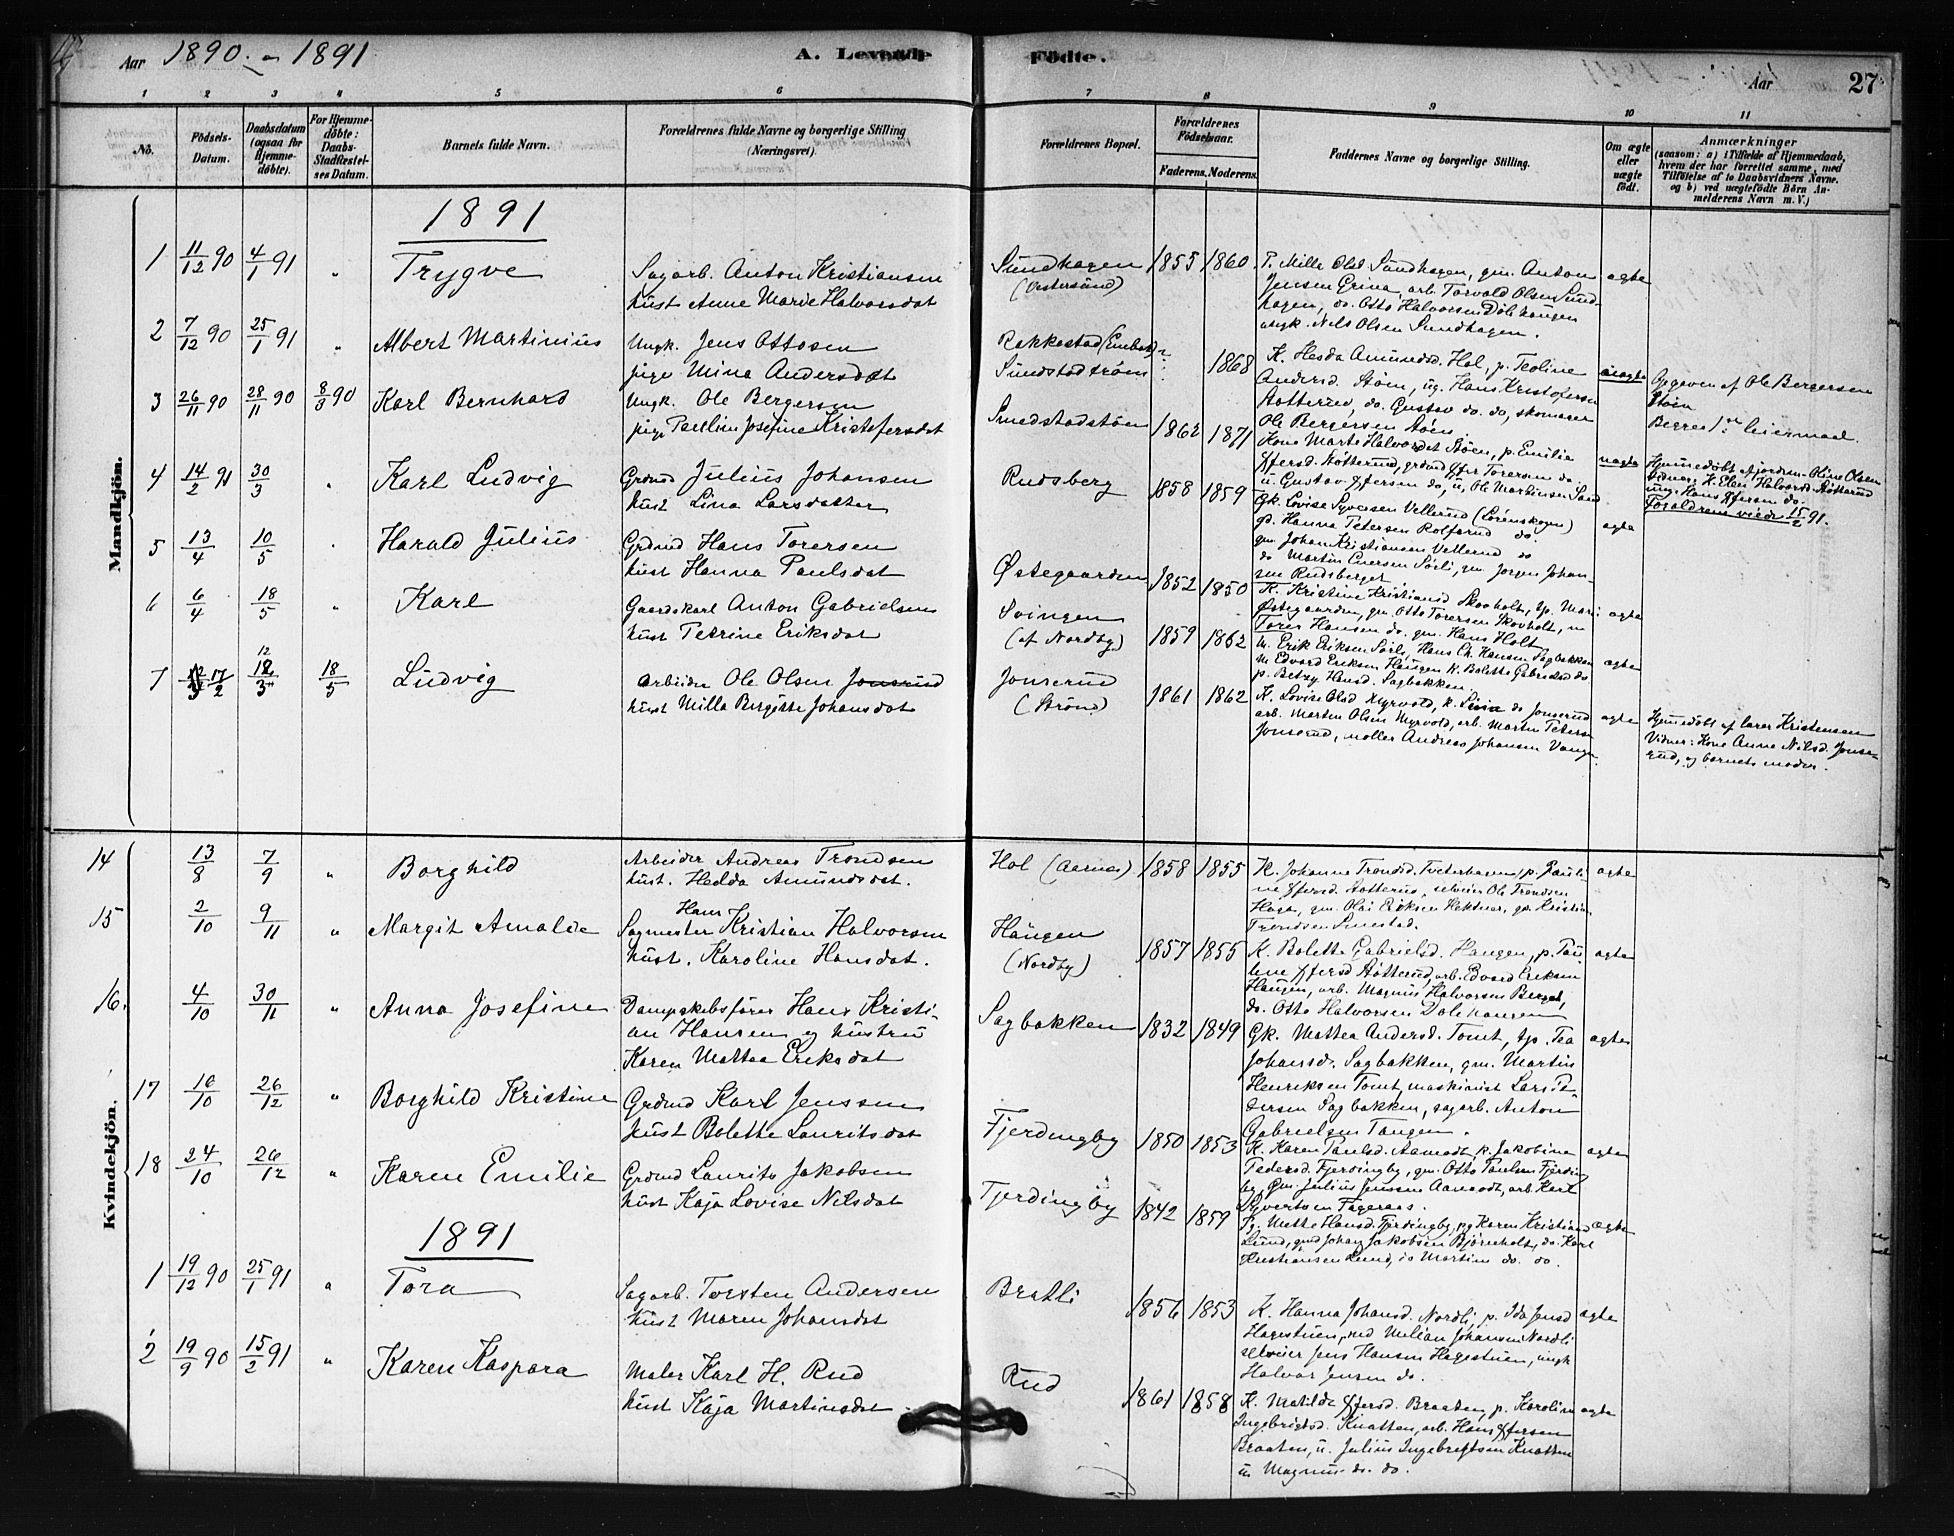 Aar 1890 - 1891
A. Levende Födte.
Aar 27
1 2 3 4 5 6 7 8 9 10 11
No.
Födsels-Datum.
Daabsdatum (ogsaa for Hjemmedöbte).
For Hjemmedöbte: Daabs-Stadfæstelses Datum.
Barnets fulde Navn.
Forældrenes fulde Navne og borgerlige Stilling (Næringsvei).
Forældrenes Bopæl.
Forældrenes Födselsaar.
Faderens. Moderens.
Faddernes Navne og borgerlige Stilling.
Om ægte eller uægte födt.
Anmærkninger
(saasom: a) i Tilfælde af Hjemmedaab,
hvem der har forrettet samme, med
Tilföielse af to Daabsvidners Navne.
og b) ved uægtefödte Börn An-
melderens Navn m. V.)
Mandkjön.
1891
1 11/12 90 4/1 91 " Trygve
Sagarb. Anton Kristiansen
hust Anne Marie Halvorsdat
Sundhagen (Vestersund) 1855 1860
P. Mille Olsd Sundhagen, gm. Anton
Jensen Grina, arb. Torvald Olsen Sund-
hagen, do. Otto Halvorsen Dölehaugen
ungk. Nils Olsen Sundhagen.
ægte
2 7/12 90 25/1 91 " Albert Martinius
Ungk. Jens Ottosen
pige Mina Andersdat
Rakkestad
Sundstadströen 1868
K. Hesda Amundsd. Hol, p. Teoline
Andersd. Stöen, ug. Hans Kristofersen
Støtterud, do. Gustav do. do, skomager
Ole Bergersen Stöen
uægte
Opgeven af Ole Bergersen
Stöen
3 26/11 90 28/11 90 8/3 90 Karl Bernhard
Ungk. Ole Bergersen
pige Pauline Josefine Kristofersdat
Smedstadstöen 1862 1871
Kone Marte Halvorsdat Stöen, p. Emilie
uægte
Begges 1ste leiermaal.
4 14/2 91 30/3 " Karl Ludvig
Grdmd Julius Johansen
hust Lina Larsdatter
Rudsberg 1858 1859
Gk. Lovise Syversen Vellerud (Lörenskogen)
gd. Hanna Petersen Rolfsrud do.
gm. Johan Kristiansen Vellerud do
do Martin Enersen Sörli, gm. Jörgen Johan-
sen Rudsberget
ægte
Forældrene viede 15/2 91.
5 13/4 10/5 " Harald Julius
Grdmd Hans Torersen
hust Hanna Paulsdat
Østegaarden 1852 1850
K. Kristine Kristiansd Skovholt, tp. Mari
Østegaarden, gm Otto Torersen Skovholt, m
Torer Hansen do. gm. Hans Holt
ægte
6 6/4 18/5 " Karl
Gaardskarl Anton Gabrielsen
hust Petrine Eriksdat
Svingen (af Nordby) 1859 1862
M. Erik Eriksen Sörli, Hans Ch. Hansen Sagbakken
M. Edvard Eriksen Haugen K. Bolette Gabrielsd do
p. Betzy Hansd. Sagbakken
ægte
7 17/2 12/3 18/5 Ludvig
Arbeider Ole Olsen Jonsrud
hust Milla Bergitte Johansdat
Jonserud (Strönd) 1861 1862
K. Lovise Olsd Myrvold, k. Lina do Jonserud
arb. Martin Olsen Myrvold, arb. Martin Petersen
Jonserud, møller Andreas Johansen Vangen
ægte
Hjemmedöbt af lærer Kristensen
Vidner: Kone Anne Nilsd. Jonse-
rud, og barnets moder.
Kvindekjön.
14 13/8 7/9 " Borghild
Arbeider Andreas Trondsen
hust. Hedda Amundsdat.
Hol (Aarnes) 1858 1855
K. Johanne Trondsd. Tveterhagen, p. Pauli-
ne Kfersd. Støtterud, selveier Ole Trondsen
Haga, gm. Olai Eriksen Hektner, gs. Kristian
Trondsen Smestad.
ægte
15 2/10 9/11 " Margit Amalde
Sagmester Hans Kristian Halvorsen
hust. Karoline Hansdat.
Haugen (Nordby) 1857 1855
K. Bolette Gabrielsd. Haugen, p. Pau-
line Kfersd Støtterud, arb. Edvard Eriksen
Haugen, arb. Magnus Halvorsen Berget,
do. Otto Halvorsen Dölehaugen
ægte
16. 4/10 30/11 " Anna Josefine
Dampskibsförer Hans Kristi-
an Hansen og hustru
Karen Mattea Eriksdat
Sagbakken 1832 1849
Gk. Mattea Andersd. Tomt, tp. Tea
Johansd. Sagbakken, gm. Martin
Henriksen Tomt, maskinist Lars Pe-
dersen Sagbakken, sagarb. Anton
Gabrielsen Tangen.
ægte
17 10/10 26/12 " Borghild Kristine
Grdmd Karl Jenssen
hust Bolette Lauritsdat
Fjerdingby 1850 1853
K. Karen Paulsd. Aamodt, p. Jakobine
Pedersd. Fjerdingby, gm. Otto Paulsen Fjerding-
by, gm. Julius Jenssen Aamodt, arb. Karl
Syvertsen Fageraas.
ægte
18 24/10 26/12 " Karen Emilie
Grdmd Laurits Jakobsen
hust Kaja Lovise Nilsdat
Fjerdingby 1842 1859
Mette Hansd. Fjerdingby, pg Karen Kristiansd
Lund, gmd Johan Jakobsen Bjørnholt, do. Karl
Kristiansen Lund, do Martin do. do.
ægte
1891
1 19/12 90 25/1 91 " Tora
Sagarb. Torsten Andersen
hust Maren Johansdat
Bratli 1856 1853
K. Hanna Johansd. Nordli, p. Ida Jensd
Hagestuen, Melian Johansen Nordli
selveier Jens Hansen Hagestuen, ungk
Halvor Jensen do.
ægte
2 19/9 90 15/2 91 " Karen Kaspara
Maler Karl H. Rud
hust Kaja Martinsdat
Rud 1861 1858
K. Matilde Kfersd. Braaten, p. Karoline
Ingebrigtsd. Knatten, arb. Hans Kfersen
Braaten, u. Julius Ingebrigtsen Knatten
u. Magnus do. do.
ægte